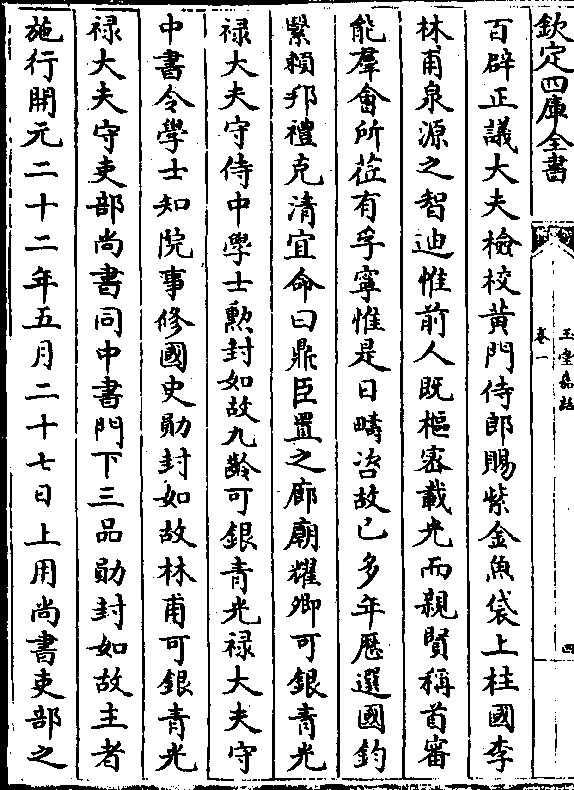 欽定四庫全書
玉堂嘉話
卷一
四
百辟正議大夫檢校黃門侍郎賜紫金魚袋上柱國李
林甫泉源之智迪惟前人既樞密載光而親賢稱首審
能羣會所莅有孚寧惟是日疇咨故已多年歷選國鈞
繄賴邦禮克清宜命曰鼎臣置之廊廟耀卿可銀青光
禄大夫守侍中學士勲封如故九齡可銀青光禄大夫守
中書令學士知院事修國史勛封如故林甫可銀青光
禄大夫守吏部尚書同中書門下三品勛封如故主者
施行開元二十二年五月二十七日上用尚書吏部之